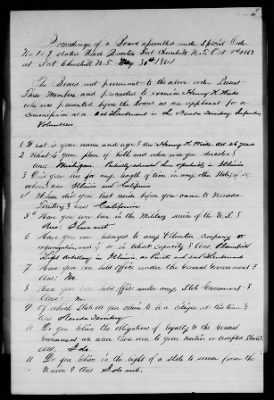 Proceedings of a Board assembled under Special Order
No. 27 dated Head Quarters Fort Churchill N.T.
at Fort Churchill N.T. May 30th 1864
The Board met pursuant to the above order. Present
Three Members and proceeded to examine Henry K.
who was presented before the Board as an applicant for a
commission as a 2nd Lieutenant in the Nevada Territory Infantry
Volunteers
1 What is your name and age? Ans Henry K.
2 What is your place of birth and where were you educated?
Ans Michigan.
3 Did you live for any length of time in any other States or
where? Ans Illinois and California
4 Where did you last reside before you came to Nevada
Territory? Ans California
5th Have you ever been in the Military service of the U.S.?
Ans I have not
6 Have you ever belonged to any Volunteer Company or
organization, and if so in what capacity? Ans Plainfield
Light Artillery in Illinois, as
7 Have you held Office under the General Government?
Ans No
8 Have you ever held Office under any State Government?
Ans No
9 Of which State do you claim to be a citizen at this time?
Ans Nevada Territory
10 Do you believe the obligations of loyalty to the General
Government
Ans I do
11 Do you believe in the right of a State to secede from the
Union? Ans I do not